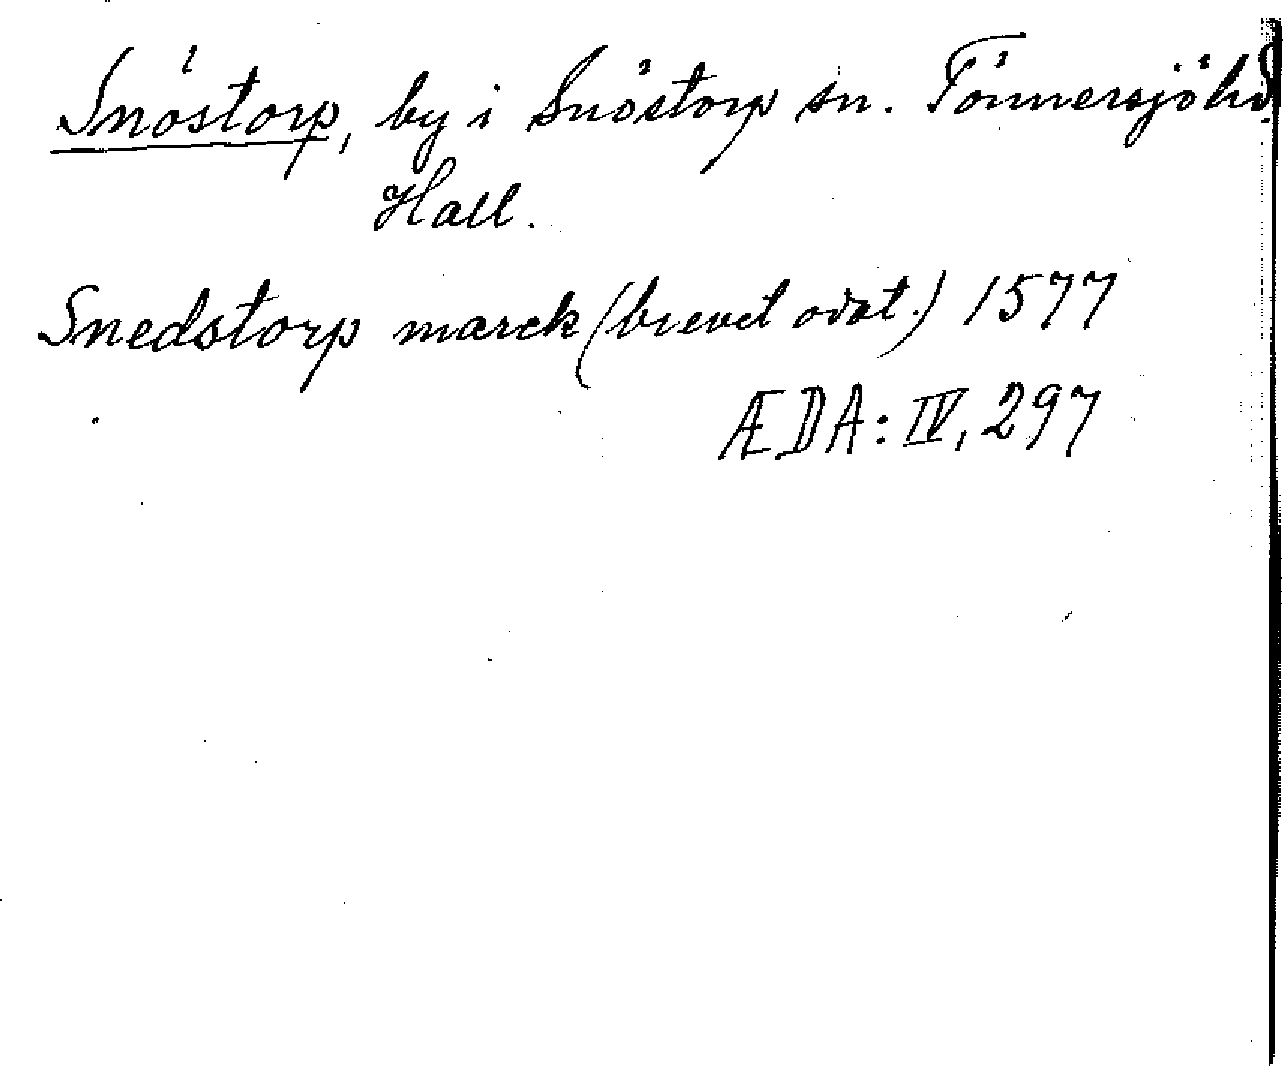 Snöstorp, by i Snöstorp sn. Tönnersjöhd.
Hall.
Snedstorp marck (brevet odat.) 1577
ÆDA: IV, 297